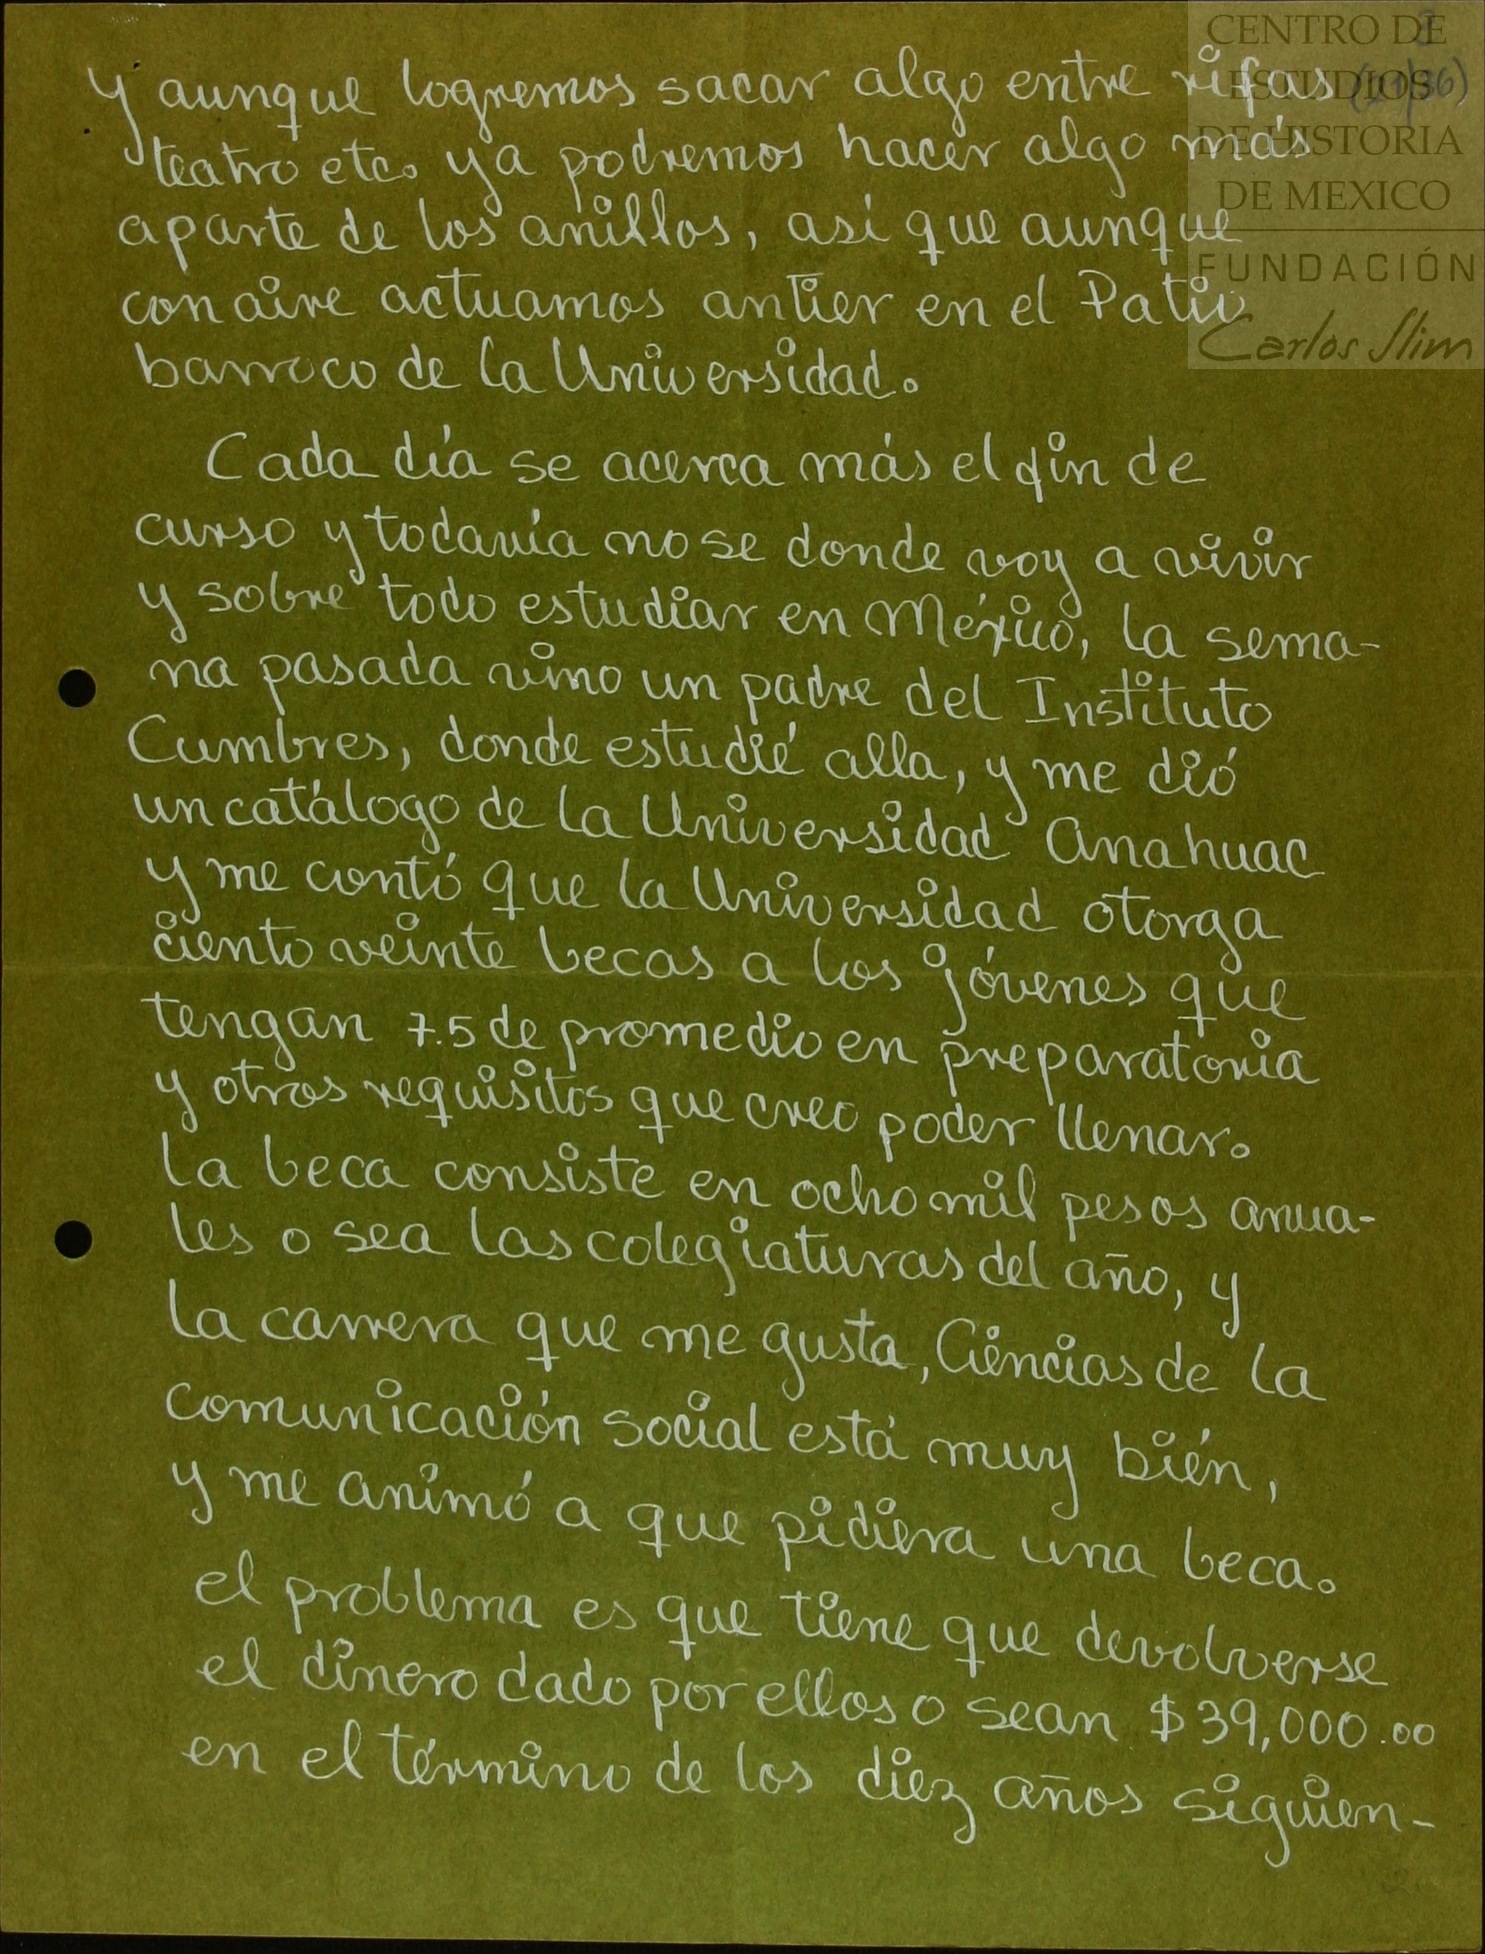 CENTRO DE
ESTUDIOS
DE HISTORIA
DE MEXICO
FUNDACIÓN
Carlos Slim
y aunque logremos sacar algo entre rifas
teatro etc. ya podremos hacer algo más
aparte de los anillos, así que aunque
con aire actuamos antier en el Patio
barroco de la Universidad.
Cada día se acerca más el fin de
curso y todavía no se donde voy a vivir
y sobre todo estudiar en México, la sema-
na pasada vino un padre del Instituto
Cumbres, donde estudié alla, y me dió
un catálogo de la Universidad Anahuac
y me contó que la Universidad otorga
ciento veinte becas a los jóvenes que
tengan 7.5 de promedio en preparatoria
y otros requisitos que creo poder llenar.
La beca consiste en ocho mil pesos anua-
les o sea las colegiaturas del año, y
la carrera que me gusta, Ciencias de la
comunicación social está muy bién,
y me animó a que pidiera una beca.
el problema es que tiene que devolverse
el dinero dado por ellos o sean $39,000.00
en el término de los diez años siguien-